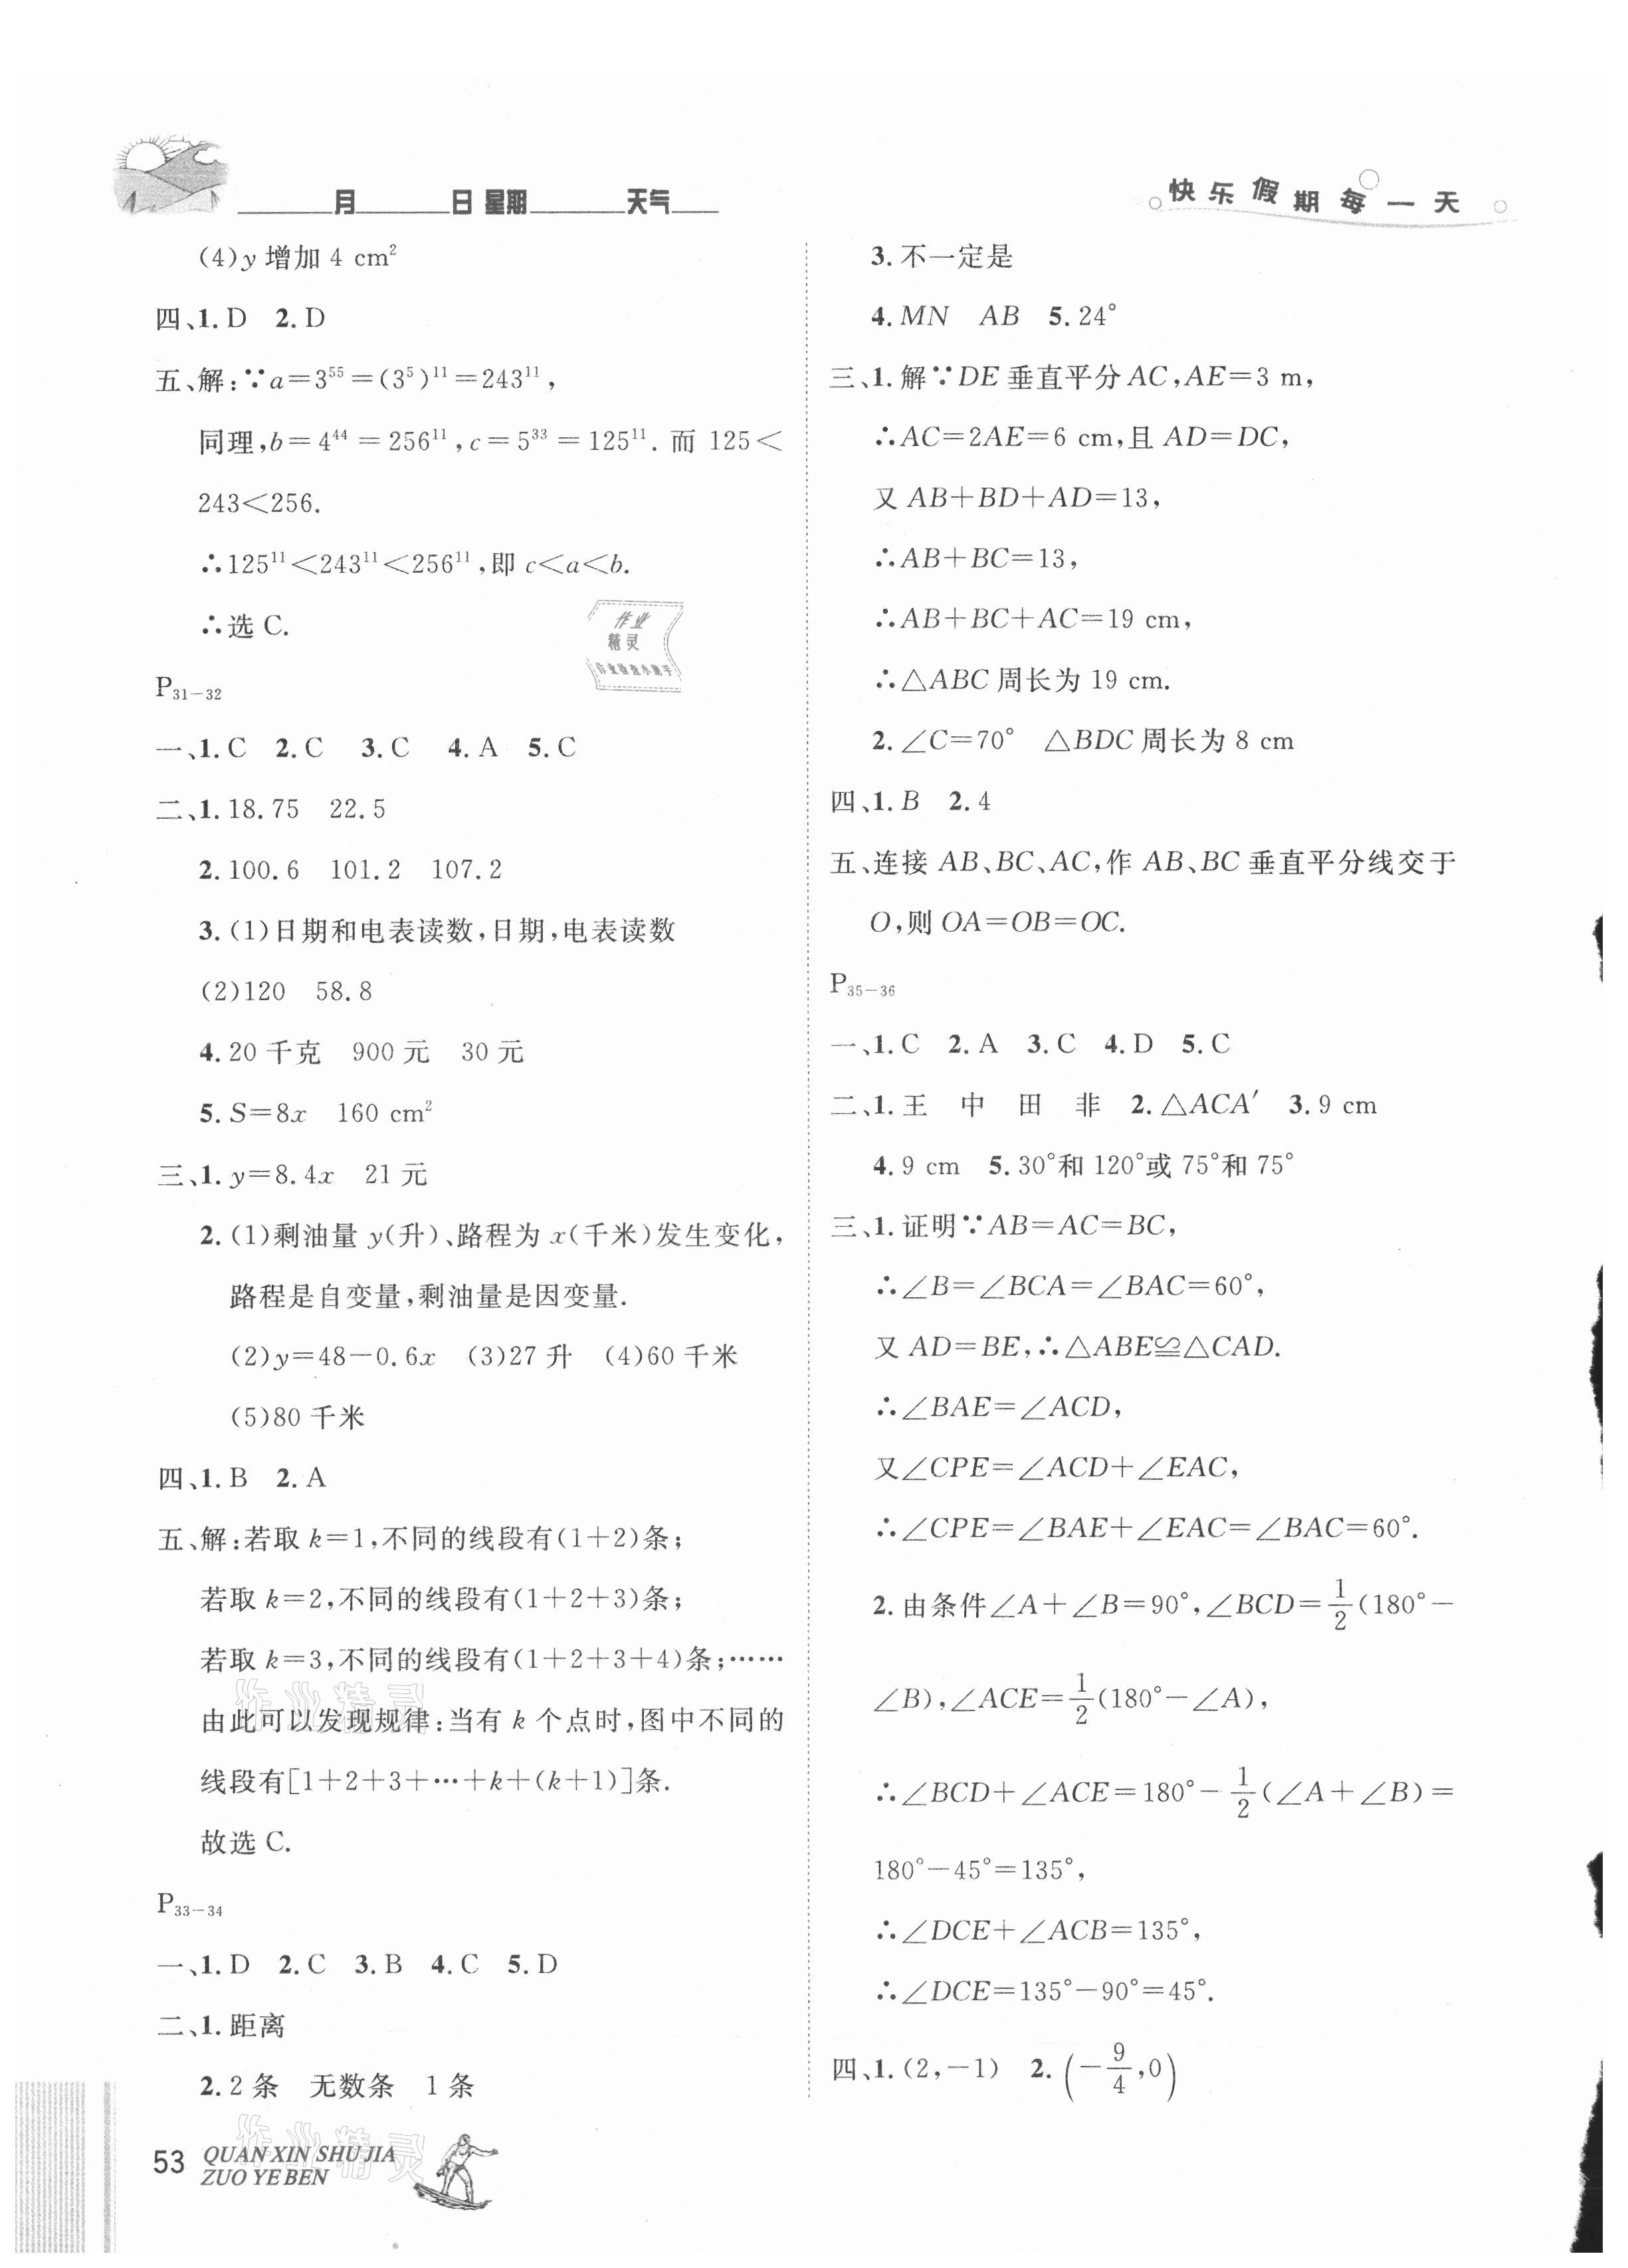 月 日 星期 天气
快乐假期每一天
(4)y 增加 4 cm²
四、1. D 2. D
五、解:∵a=3⁵⁵=(3⁵)¹¹=243¹¹,
同理,b=4⁴⁴=256¹¹,c=5³³=125¹¹. 而 125<
243<256.
∴125¹¹<243¹¹<256¹¹,即 c<a<b.
∴选 C.
作业
精灵
P₃₁₋₃₂
一、1. C 2. C 3. C 4. A 5. C
二、1. 18.75 22.5
2. 100.6 101.2 107.2
3. (1)日期和电表读数,日期,电表读数
(2)120 58.8
4. 20 千克 900 元 30 元
5. S=8x 160 cm²
三、1. y=8.4x 21 元
2. (1)剩油量 y(升)、路程为 x(千米)发生变化,
路程是自变量,剩油量是因变量.
(2)y=48-0.6x (3)27 升 (4)60 千米
(5)80 千米
四、1. B 2. A
五、解:若取 k=1,不同的线段有(1+2)条;
若取 k=2,不同的线段有(1+2+3)条;
若取 k=3,不同的线段有(1+2+3+4)条;……
由此可以发现规律:当有 k 个点时,图中不同的
线段有[1+2+3+…+k+(k+1)]条.
故选 C.
P₃₃₋₃₄
一、1. D 2. C 3. B 4. C 5. D
二、1. 距离
2. 2 条 无数条 1 条
3. 不一定是
4. MN AB 5. 24°
三、1. 解∵DE 垂直平分 AC,AE=3 m,
∴AC=2AE=6 cm,且 AD=DC,
又 AB+BD+AD=13,
∴AB+BC=13,
∴AB+BC+AC=19 cm,
∴△ABC 周长为 19 cm.
2. ∠C=70° △BDC 周长为 8 cm
四、1. B 2. 4
五、连接 AB、BC、AC,作 AB、BC 垂直平分线交于
O,则 OA=OB=OC.
P₃₅₋₃₆
一、1. C 2. A 3. C 4. D 5. C
二、1. 王 中 田 非 2. △ACA′ 3. 9 cm
4. 9 cm 5. 30°和 120°或 75°和 75°
三、1. 证明∵AB=AC=BC,
∴∠B=∠BCA=∠BAC=60°,
又 AD=BE,∴△ABE≌△CAD.
∴∠BAE=∠ACD,
又∠CPE=∠ACD+∠EAC,
∴∠CPE=∠BAE+∠EAC=∠BAC=60°.
2. 由条件∠A+∠B=90°,∠BCD=1/2(180°-
∠B),∠ACE=1/2(180°-∠A),
∴∠BCD+∠ACE=180°-1/2(∠A+∠B)=
180°-45°=135°,
∴∠DCE+∠ACB=135°,
∴∠DCE=135°-90°=45°.
四、1. (2,-1) 2. (-9/4,0)
作业精灵
作业精灵
53 QUAN XIN SHU JIA
ZUO YE BEN